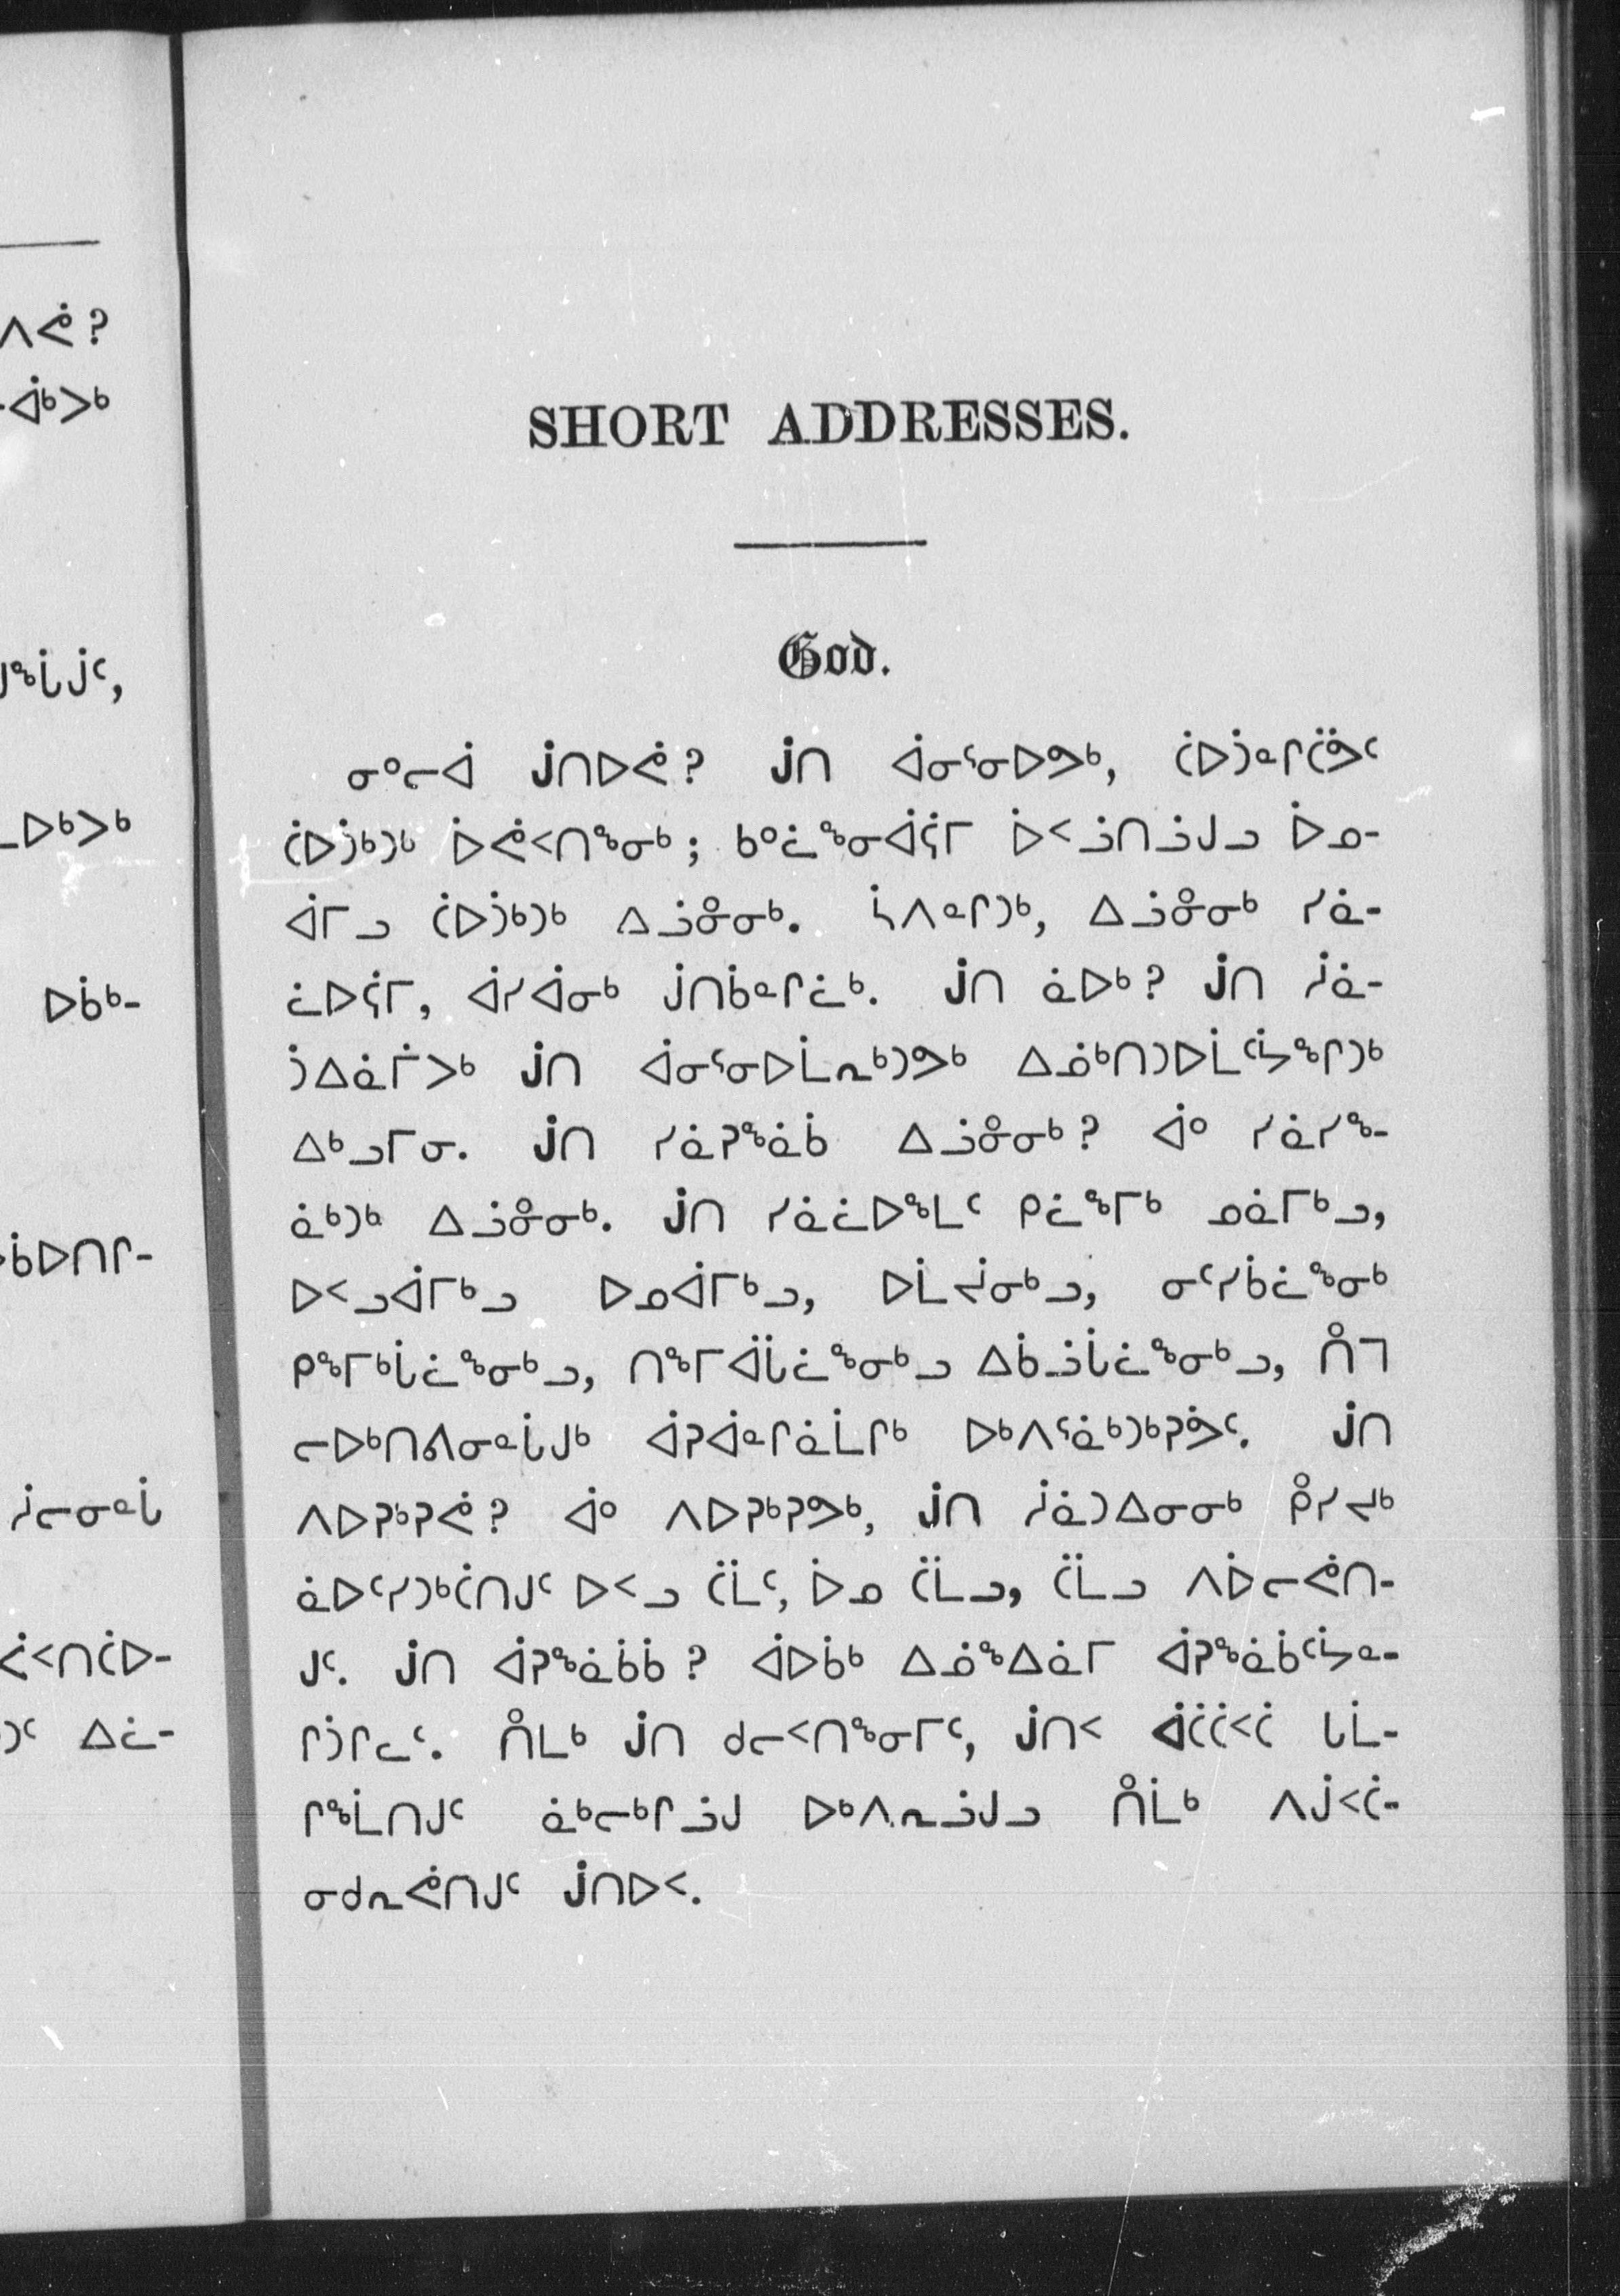 SHORT ADDRESSES.
God.
ᓂᓪᓕᐋ ᒎᑎᐅᕚ? ᒎᑎ ᐋᓂᕐᓂᐅᕗᒃ, ᑖᐅᑑᓐᒋᑖᕗᑦ
ᑖᐅᑑᒃᑐᒃ ᐆᕚᑉᑎᖕᓂᒃ; ᑲᓪᓛᖕᓂᐋᕌᒥ ᐆᑉᓘᑎᓘᒍᓗ ᐆᓄ-
ᐋᒥᓗ ᑖᐅᑑᒃᑐᒃ ᐃᓘᓐᓂᒃ. ᓵᐱᓐᒋᑐᒃ, ᐃᓘᓐᓂᒃ ᓯᓈ-
ᓛᐅᕌᒥ, ᐋᓯᐋᓂᒃ ᒎᑎᑳᓐᒋᓛᒃ. ᒎᑎ ᓈᐅᒃ? ᒎᑎ ᓰᓈ-
ᑑᐃᓈᒦᐳᒃ ᒎᑎ ᐋᓂᕐᓂᐅᒫᕆᒃᑐᕗᒃ ᐃᓅᒃᑎᑐᐅᒫᑦᔮᖕᒋᑐᒃ
ᐃᒃᓗᒥᓂ. ᒎᑎ ᓯᓈᕈᖕᓈᑳ ᐃᓘᓐᓂᒃ? ᐋᓪ ᓯᓈᓯᖕ-
ᓈᒃᑐᒃ ᐃᓘᓐᓂᒃ. ᒎᑎ ᓯᓈᓛᐅᖕᒪᑦ ᑭᓛᖕᒥᒃ ᓄᓈᒥᒃᓗ,
ᐅᑉᓗᐋᒥᒃᓗ ᐅᓄᐋᒥᒃᓗ, ᐅᒫᔫᓂᒃᓗ, ᓂᕐᓯᑳᓛᖕᓂᒃ
ᑭᖕᒥᒃᔮᓛᖕᓂᒃᓗ, ᑎᖕᒥᐋᔮᓛᖕᓂᒃᓗ ᐃᑳᓘᔮᓛᖕᓂᒃᓗ, ᑏᒣ
ᓕᐅᒃᑎᕕᓂᓐᖔᒍᒃ ᐋᕈᐋᓐᒋᓈᒫᒋᒃ ᐅᒃᐱᕐᓈᒃᑐᒃᑭᕗᑦ. ᒎᑎ
ᐱᐅᕈᒃᕈᕚ? ᐋᓪ ᐱᐅᕈᒃᕈᕗᒃ, ᒎᑎ ᓰᓈᑐᐃᓂᓂᒃ ᑮᓯᔪᒃ
ᓈᐅᕐᓯᑐᒃᑖᑎᒍᑦ ᐅᑉᓗ ᑖᒪᑦ, ᐆᓄ ᑖᒪᓗ, ᑖᒪᓗ ᐱᐆᓕᕚᑎ-
ᒍᑦ. ᒎᑎ ᐋᕈᖕᓈᑳᑳ? ᐋᐅᑳᒃ ᐃᓅᖕᐃᓈᒥ ᐋᕈᖕᓈᑳᑦᔮᓐ-
ᒋᑑᒋᓚᑦ. ᑏᒪᒃ ᒎᑎ ᑯᓕᑉᑎᖕᓂᒥᑦ, ᒎᑎᑉ ᐋᑖᑖᑉᑖ ᓴᒫ-
ᒋᖕᒫᑎᒍᑦ ᓈᒃᓕᒃᒋᓘᒍ ᐅᒃᐱᕆᓘᒍᓗ ᑏᒫᒃ ᐱᒎᑉᑖ-
ᓂᑯᕆᕚᑎᒍᑦ ᒎᑎᐅᑉ.